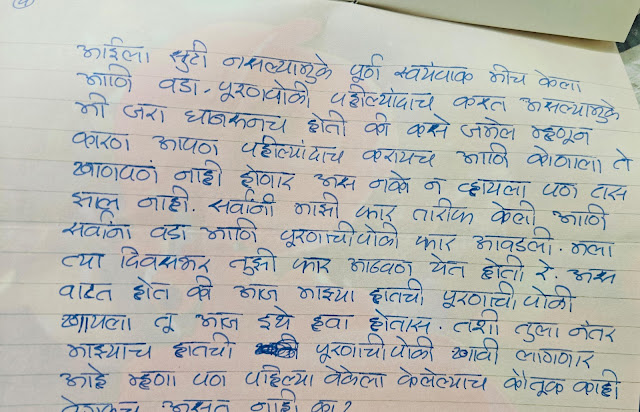 आईला सुट्टी नसल्यामुळे पूर्ण स्वयंपाक मीच केला
आणि वडा, पूरणपोळी पहील्यांदाच करत असल्यामुळे
मी जरा घाबरूनच होती की कसे जमेल म्हणून
कारण आपण पहील्यांदाच करायच आणि कोणाला ते
खाणपणं नाही होणार अस नको न व्हायला पण तस
झालू नाही. सर्वांनी माझी फार तारीफ केली आणि
सर्वांना वडा आणि पूरणाचीपोळी फार आवडली. मला
त्या दिवसभर तुझी फार आठवण येत होती रे. अस
वाटत होत की आज माझ्या हातची पूरणाचीपोळी
खायला तू आज इथे हवा होतास. तशी तुला नंतर
माझ्याच हातची पूरणाचीपोळी खावी लागणार
आहे म्हणा पण पहिल्या वेळेला केलेल्याच कौतूक काही
वेगळच असत नाही का?